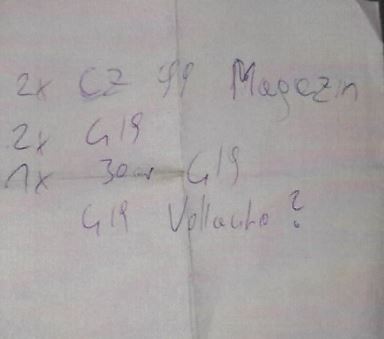 2x CZ 99 Magazin
2x G19
1x 30er G19
G19 Vollauto?